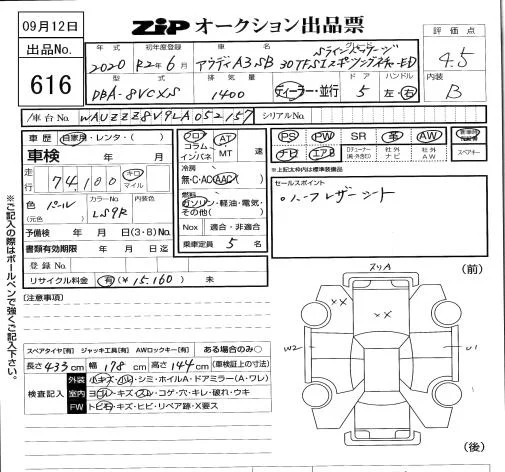 09月12日
ZIP オークション出品票
出品No.
616
年式 初年度登録 車名 グレード ドア ハンドル
2020 R2年6月 アウディA3SB Sラインパッケージ
30TFSI スポーツ ED
型式 排気量
DBA-8VCXS 1400 ディーラー・並行 5 左・右
評価点
4.5
内装
B
車台No. WAUZZZ8V9LA052157 シリアルNo.
車歴 自家用・レンタ・( )
車検 年 月
走行 74,180 キロ マイル
色 (元色) パール カラーNo. LS9R 内装色
予備検 年 月 日(3・8)No.
書類有効期限 年 月 日迄
登録No.
リサイクル料金 有(¥15,160) 未
フロア コラム インパネ AT MT 速
冷房
無・C・AC・AAC
燃料
ガソリン・軽油・電気・その他( )
Nox 適合・非適合
乗車定員 5 名
PS PW SR 革 AW
ナビ エアB Dチューナー 社外ナビ 社外AW スペアキー
※上記太枠内は標準装備品
セールスポイント
・ハーフレザーシート
[注意事項]
※ご記入の際はボールペンで強くご記入下さい。
スペアタイヤ[有] ジャッキ工具[有] AWロックキー[有] ある場合のみ○
長さ433cm 幅178cm 高さ144cm (車検証上の寸法)
検査記入
外装 小キズ・小凹・シミ・ホイルA・ドアミラー(A・ワレ)
室内 ヨゴレ・キズ・スレ・コゲ・穴・キレ・破れ・ウキ
FW トビ石・キズ・ヒビ・リペア跡・X要ス
スリA (前)
XX
W2 U1
XX
(後)